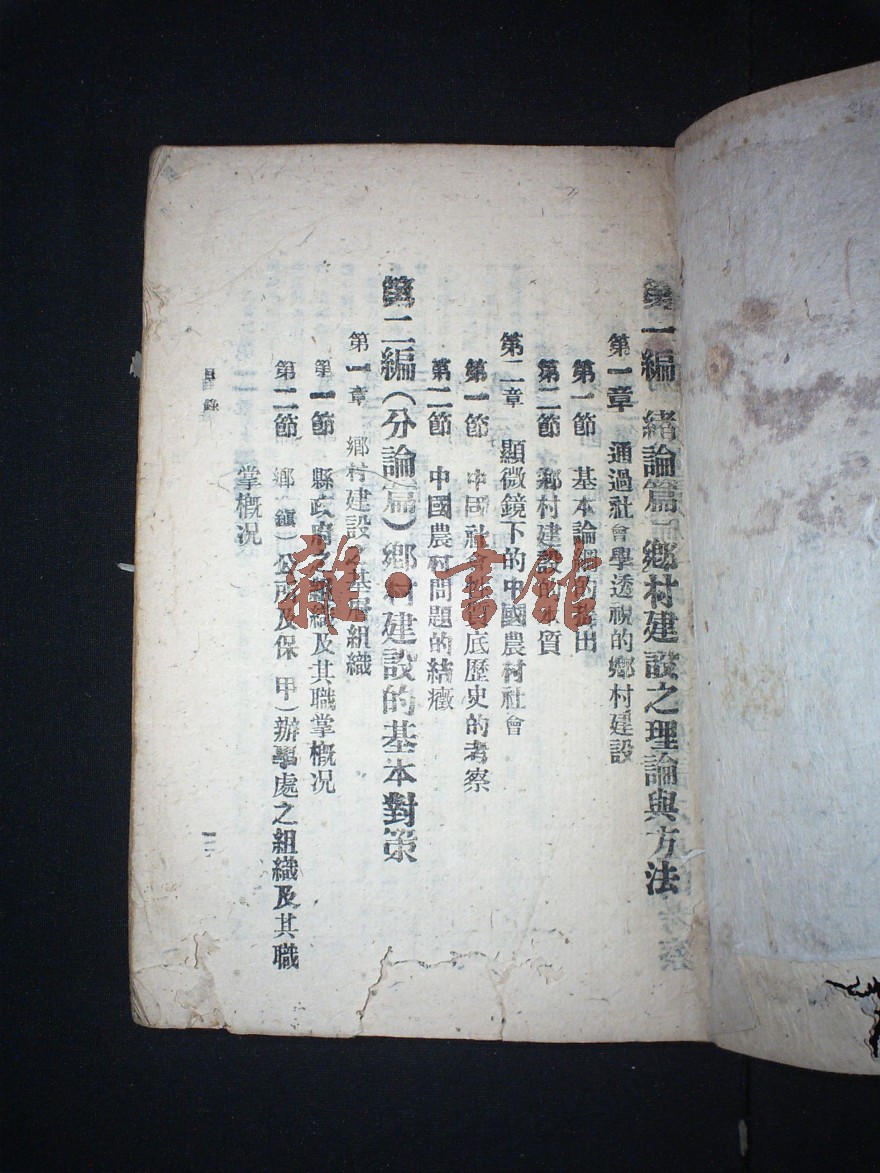 第一編 緒論篇 鄉村建設之理論與方法
第一章 通過社會學透視的鄉村建設
第一節 基本論 的 出
第二節 鄉村建設的本質
第二章 顯微鏡下的中國農村社會
第一節 中國社會性質底歷史的考察
第二節 中國農村問題的結癥
第二編(分論篇)鄉村建設的基本對策
第一章 鄉村建設之基層組織
第一節 縣政府之組織及其職掌概况
第二節 鄉(鎮)公所及保 甲)辦事處之組織及其職
掌概况
目錄
雜·書館